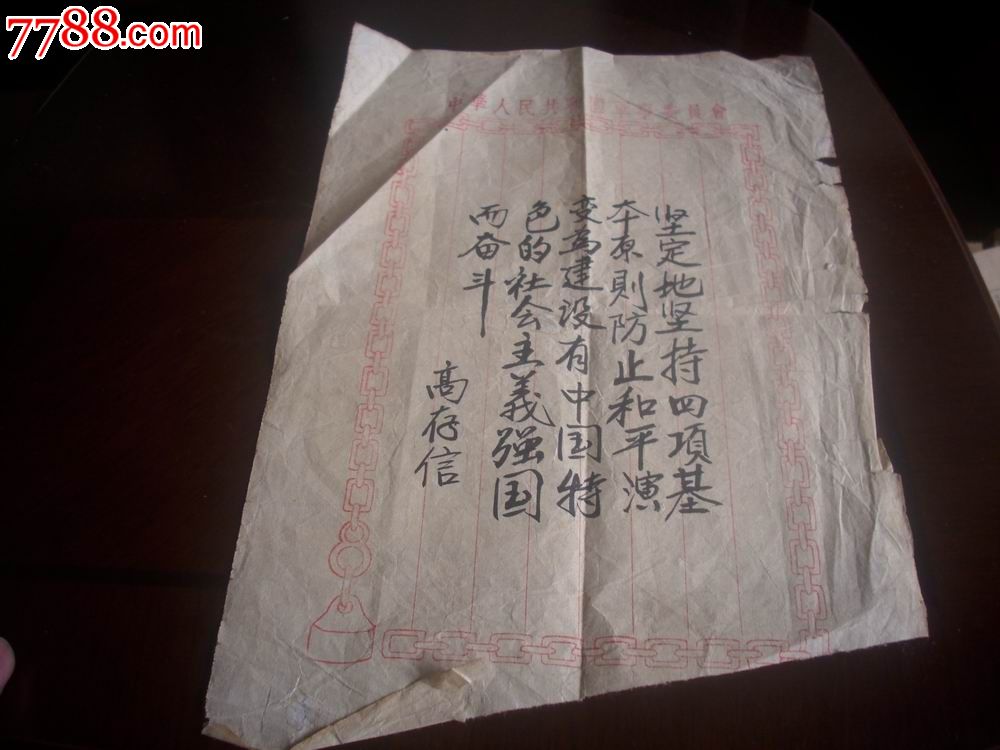 7788.com
中華人民共
員會
坚定地坚持四項基
本原則防止和平演
变為建设有中国特
色的社会主義强国
而奋斗
高存信